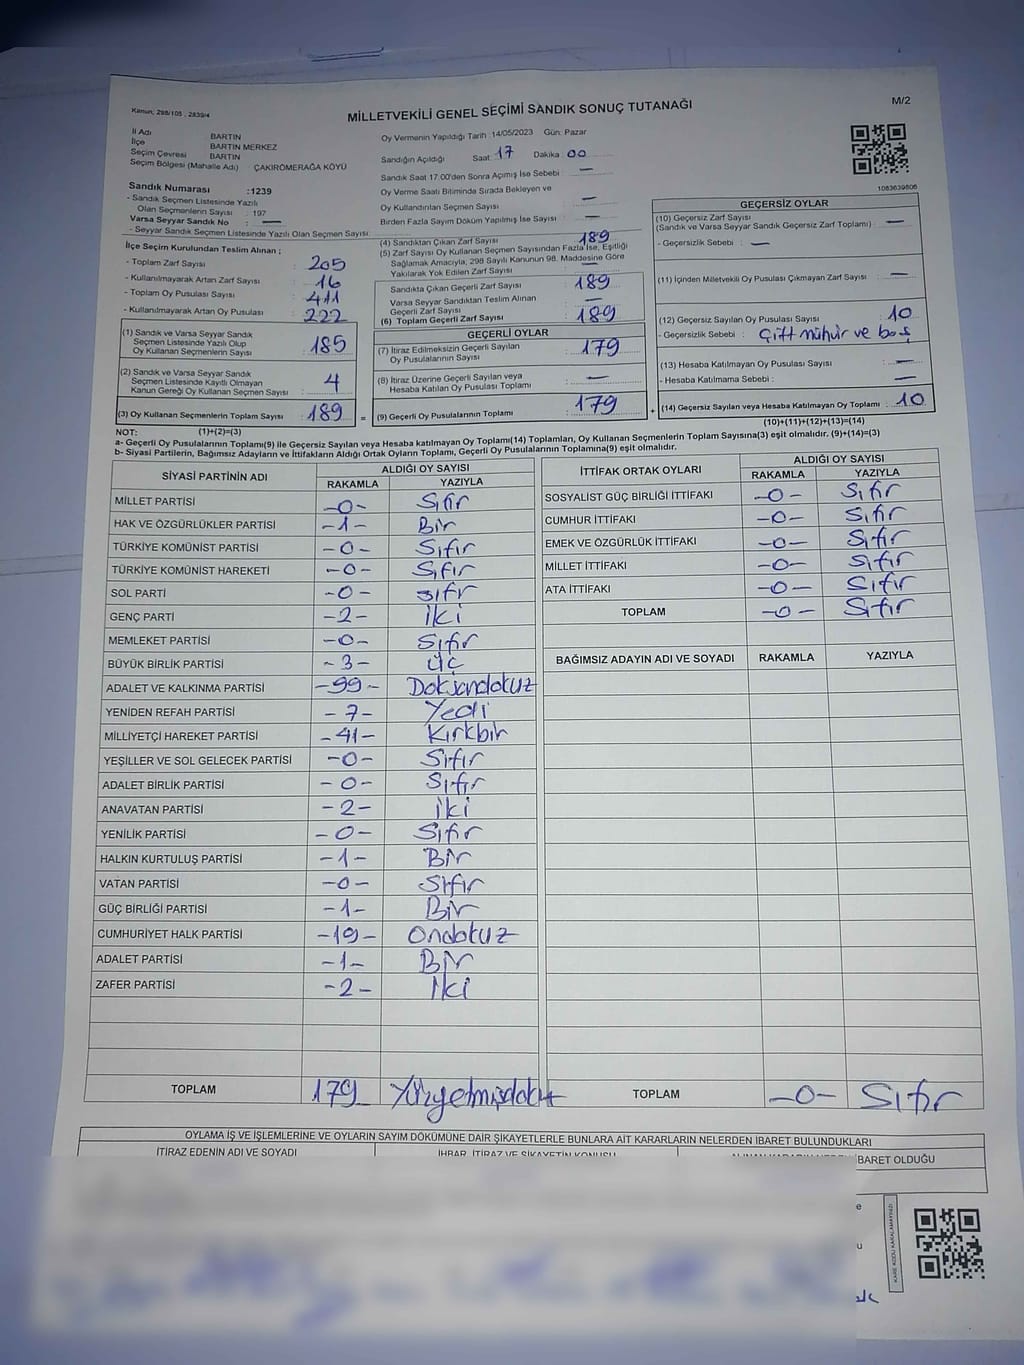 Kanun; 298/105 , 2839/4
MİLLETVEKİLİ GENEL SEÇİMİ SANDIK SONUÇ TUTANAĞI
M/2
İl Adı BARTIN
İlçe BARTIN MERKEZ
Seçim Çevresi BARTIN
Seçim Bölgesi (Mahalle Adı) : ÇAKIRÖMERAĞA KÖYÜ
Sandık Numarası :1239
- Sandık Seçmen Listesinde Yazılı
Olan Seçmenlerin Sayısı : 197
Varsa Seyyar Sandık No : —
- Seyyar Sandık Seçmen Listesinde Yazılı Olan Seçmen Sayısı
Oy Vermenin Yapıldığı Tarih :14/05/2023 Gün: Pazar
Sandığın Açıldığı Saat: 17 Dakika: 00
Sandık Saat 17.00'den Sonra Açımış İse Sebebi : —
Oy Verme Saati Bitiminde Sırada Bekleyen ve
Oy Kullandırılan Seçmen Sayısı : —
Birden Fazla Sayım Döküm Yapılmış İse Sayısı : —
1083639806
İlçe Seçim Kurulundan Teslim Alınan ;
- Toplam Zarf Sayısı : 205
- Kullanılmayarak Artan Zarf Sayısı : 16
- Toplam Oy Pusulası Sayısı : 411
- Kullanılmayarak Artan Oy Pusulası : 222
(1) Sandık ve Varsa Seyyar Sandık
Seçmen Listesinde Yazılı Olup
Oy Kullanan Seçmenlerin Sayısı : 185
(2) Sandık ve Varsa Seyyar Sandık
Seçmen Listesinde Kayıtlı Olmayan
Kanun Gereği Oy Kullanan Seçmen Sayısı : 4
(3) Oy Kullanan Seçmenlerin Toplam Sayısı : 189 =
(1)+(2)=(3)
(4) Sandıktan Çıkan Zarf Sayısı : 189
(5) Zarf Sayısı Oy Kullanan Seçmen Sayısından Fazla İse, Eşitliği
Sağlamak Amacıyla, 298 Sayılı Kanunun 98. Maddesine Göre
Yakılarak Yok Edilen Zarf Sayısı : —
Sandıkta Çıkan Geçerli Zarf Sayısı : 189
Varsa Seyyar Sandıktan Teslim Alınan
Geçerli Zarf Sayısı : —
(6) Toplam Geçerli Zarf Sayısı : 189
GEÇERLİ OYLAR
(7) İtiraz Edilmeksizin Geçerli Sayılan
Oy Pusulalarının Sayısı : 179
(8) İtiraz Üzerine Geçerli Sayılan veya
Hesaba Katılan Oy Pusulası Toplamı : —
(9) Geçerli Oy Pusulalarının Toplamı : 179 +
GEÇERSİZ OYLAR
(10) Geçersiz Zarf Sayısı
(Sandık ve Varsa Seyyar Sandık Geçersiz Zarf Toplamı) : —
- Geçersizlik Sebebi : —
(11) İçinden Milletvekili Oy Pusulası Çıkmayan Zarf Sayısı : —
(12) Geçersiz Sayılan Oy Pusulası Sayısı : 10
- Geçersizlik Sebebi : Çift mühür ve boş
(13) Hesaba Katılmayan Oy Pusulası Sayısı : —
- Hesaba Katılmama Sebebi : —
(14) Geçersiz Sayılan veya Hesaba Katılmayan Oy Toplamı : 10
(10)+(11)+(12)+(13)=(14)
NOT:
a- Geçerli Oy Pusulalarının Toplamı(9) ile Geçersiz Sayılan veya Hesaba katılmayan Oy Toplamı(14) Toplamları, Oy Kullanan Seçmenlerin Toplam Sayısına(3) eşit olmalıdır. (9)+(14)=(3)
b- Siyasi Partilerin, Bağımsız Adayların ve İttifakların Aldığı Ortak Oyların Toplamı, Geçerli Oy Pusulalarının Toplamına(9) eşit olmalıdır.
SİYASİ PARTİNİN ADI ALDIĞI OY SAYISI
RAKAMLA YAZIYLA
MİLLET PARTİSİ -0- Sıfır
HAK VE ÖZGÜRLÜKLER PARTİSİ -1- Bir
TÜRKİYE KOMÜNİST PARTİSİ -0- Sıfır
TÜRKİYE KOMÜNİST HAREKETİ -0- Sıfır
SOL PARTİ -0- sıfır
GENÇ PARTİ -2- iki
MEMLEKET PARTİSİ -0- Sıfır
BÜYÜK BİRLİK PARTİSİ -3- üç
ADALET VE KALKINMA PARTİSİ -99- Doksandokuz
YENİDEN REFAH PARTİSİ -7- Yedi
MİLLİYETÇİ HAREKET PARTİSİ -41- Kırkbir
YEŞİLLER VE SOL GELECEK PARTİSİ -0- Sıfır
ADALET BİRLİK PARTİSİ -0- Sıfır
ANAVATAN PARTİSİ -2- iki
YENİLİK PARTİSİ -0- Sıfır
HALKIN KURTULUŞ PARTİSİ -1- Bir
VATAN PARTİSİ -0- Sıfır
GÜÇ BİRLİĞİ PARTİSİ -1- Bir
CUMHURİYET HALK PARTİSİ -19- Ondokuz
ADALET PARTİSİ -1- Bir
ZAFER PARTİSİ -2- iki
TOPLAM 179
İTTİFAK ORTAK OYLARI ALDIĞI OY SAYISI
RAKAMLA YAZIYLA
SOSYALİST GÜÇ BİRLİĞİ İTTİFAKI -0- Sıfır
CUMHUR İTTİFAKI -0- Sıfır
EMEK VE ÖZGÜRLÜK İTTİFAKI -0- Sıfır
MİLLET İTTİFAKI -0- Sıfır
ATA İTTİFAKI -0- Sıfır
TOPLAM -0- Sıfır
BAĞIMSIZ ADAYIN ADI VE SOYADI RAKAMLA YAZIYLA
TOPLAM -0- Sıfır
OYLAMA İŞ VE İŞLEMLERİNE VE OYLARIN SAYIM DÖKÜMÜNE DAİR ŞİKAYETLERLE BUNLARA AİT KARARLARIN NELERDEN İBARET BULUNDUKLARI
İTİRAZ EDENİN ADI VE SOYADI İHBAR, İTİRAZ VE ŞİKAYETİN KONUSU BARET OLDUĞU
KARE KODU KARALAMAYINIZ!